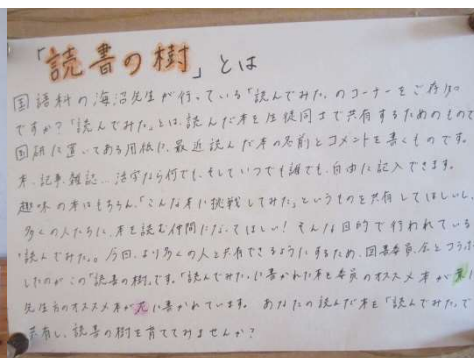 「読書の樹」とは
国語科の海沼先生が行っている「読んでみた」のコーナーをご存知
ですか?「読んでみた」とは、読んだ本を生徒同士で共有するためのもので
国研に置いてある用紙に、最近読んだ本の名前とコメントを書くものです。
本、記事、雑誌…活字なら何でも、そしていつでも誰でも、自由に記入できます。
趣味の本はもちろん、「こんな本に挑戦してみた」というものを共有してほしいし、
多くの人たちに、本を読む仲間になってほしい!そんな目的で行われている
「読んでみた」。今回、より多くの人と共有できるようにするため、図書委員会とコラボ
したのがこの「読書の樹」です。「読んでみた」に書かれた本と委員のオススメ本が葉に
先生方のオススメ本が花に書かれています。あなたの読んだ本を「読んでみた」で
共有し、読書の樹を育ててみませんか?